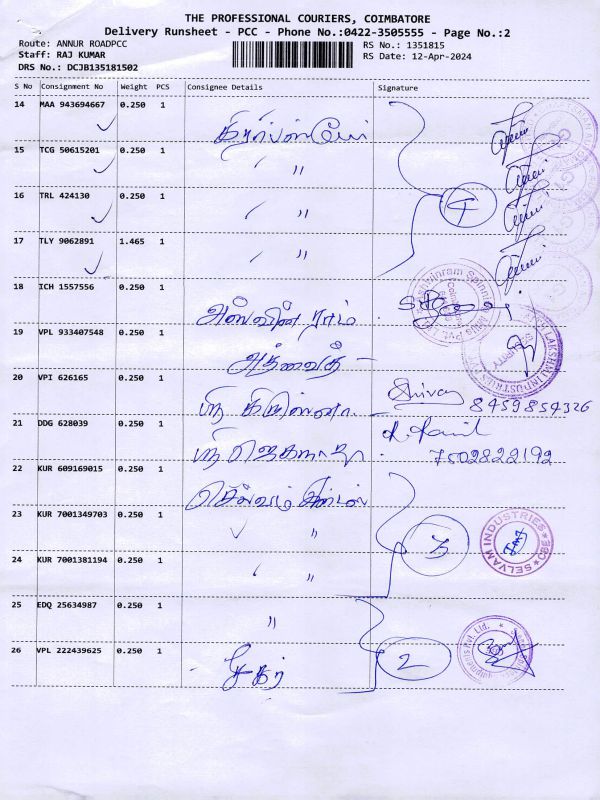 THE PROFESSIONAL COURIERS, COIMBATORE
Delivery Runsheet - PCC - Phone No.:0422-3505555 - Page No.:2
Route: ANNUR ROADPCC
RS No.: 1351815
Staff: RAJ KUMAR
RS Date: 12-Apr-2024
DRS No.: DCJB135181502
S No Consignment No Weight PCS Consignee Details Signature
14 MAA 943694667 0.250 1
15 TCG 50615201 0.250 1 〃
16 TRL 424130 0.250 1 〃
17 TLY 9062891 1.465 1 〃
4
18 ICH 1557556 0.250 1
அஸ்வின் ராம்
19 VPL 933407548 0.250 1
அத்வைத் -
20 VPI 626165 0.250 1
ஸ்ரீ கிருஷ்ணா
8459854326
21 DDG 628039 0.250 1
ஸ்ரீ ஜெகநாதா
7502822192
22 KUR 609169015 0.250 1
செல்வம்
23 KUR 7001349703 0.250 1 〃
3
SELVAM INDUSTRIES * CBE *
24 KUR 7001381194 0.250 1 〃
25 EDQ 25634987 0.250 1 〃
26 VPL 222439625 0.250 1
2